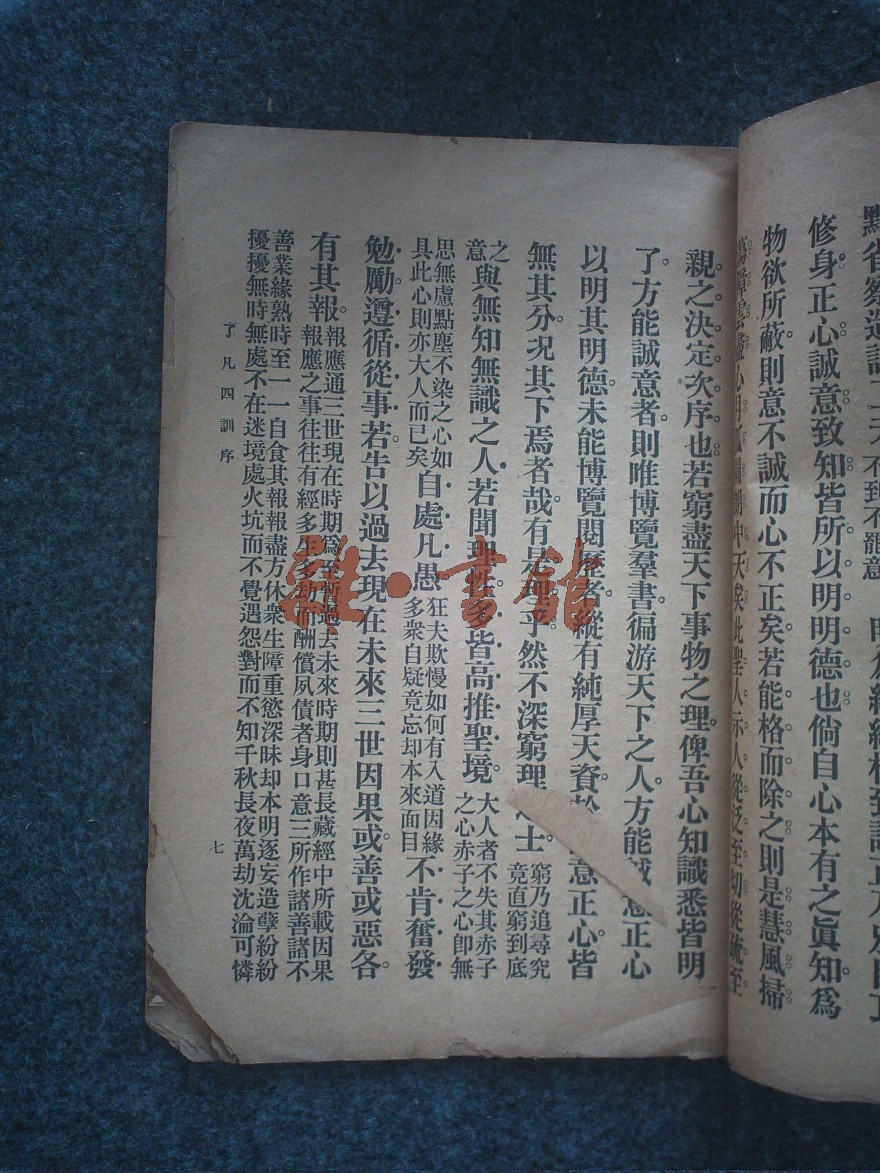 修身正心誠意致知皆所以明明德也倘自心本有之眞知爲
物欲所蔽則意不誠而心不正矣若能格而除之則是慧風掃
中天矣此聖人示人從泛至切從疏至
親之決定次序也若窮盡天下事物之理俾吾心知識悉皆明
了方能誠意者則唯博覽羣書徧游天下之人方能誠意正心
以明其明德未能博覽閱歷者縱有純厚天資於 意正心皆
無其分況其下焉者哉有是理乎然不深窮理之士窮乃追尋究
竟直窮到底
之
意與無知無識之人若聞理性多皆高推聖境大人者不失其赤子
之心赤子之心卽無
思無慮點塵不染之心如
具此心則亦大人而已矣自處凡愚狂夫欺慢如何有入道因緣
多衆自疑竟忘却本來面目不肯奮發
勉勵遵循從事若告以過去現在未來三世因果或善或惡各
有其報報應通三世現在時期爲至暫過去未來時期則甚長藏經中所載因果
報應之事往往有經多生多劫而酬償夙債者身口意三所作諸善諸不
善業緣熟時至一一自食其報報盡方休衆生障重慾深昧却本明逐妄造孽紛紛
擾擾無時無處不在迷境處火坑而不覺遇怨對而不知千秋長夜萬劫沈淪可憐
了凡四訓序
七
雜·書館